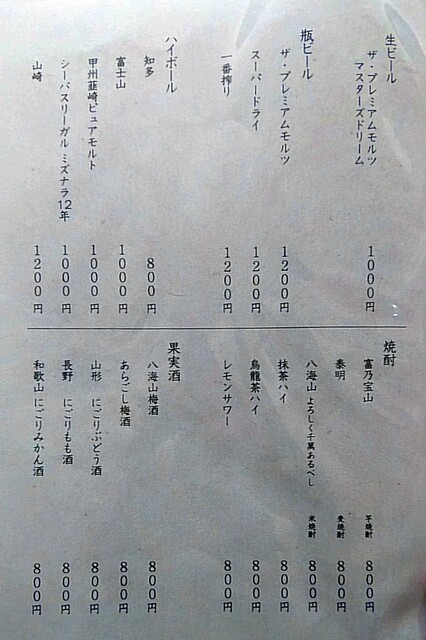 生ビール
ザ・プレミアムモルツ
マスターズドリーム 1000円
瓶ビール
ザ・プレミアムモルツ 1200円
スーパードライ 1200円
一番搾り 1200円
ハイボール
知多 800円
富士山 1000円
甲州韮崎ピュアモルト 1000円
シーバスリーガル ミズナラ12年 1000円
山崎 1200円
焼酎
富乃宝山 芋焼酎 800円
泰明 麦焼酎 800円
八海山 よろしく千萬あるべし 米焼酎 800円
抹茶ハイ 800円
烏龍茶ハイ 800円
レモンサワー 800円
果実酒
八海山梅酒 800円
あらごし梅酒 800円
山形 にごりぶどう酒 800円
長野 にごりもも酒 800円
和歌山 にごりみかん酒 800円